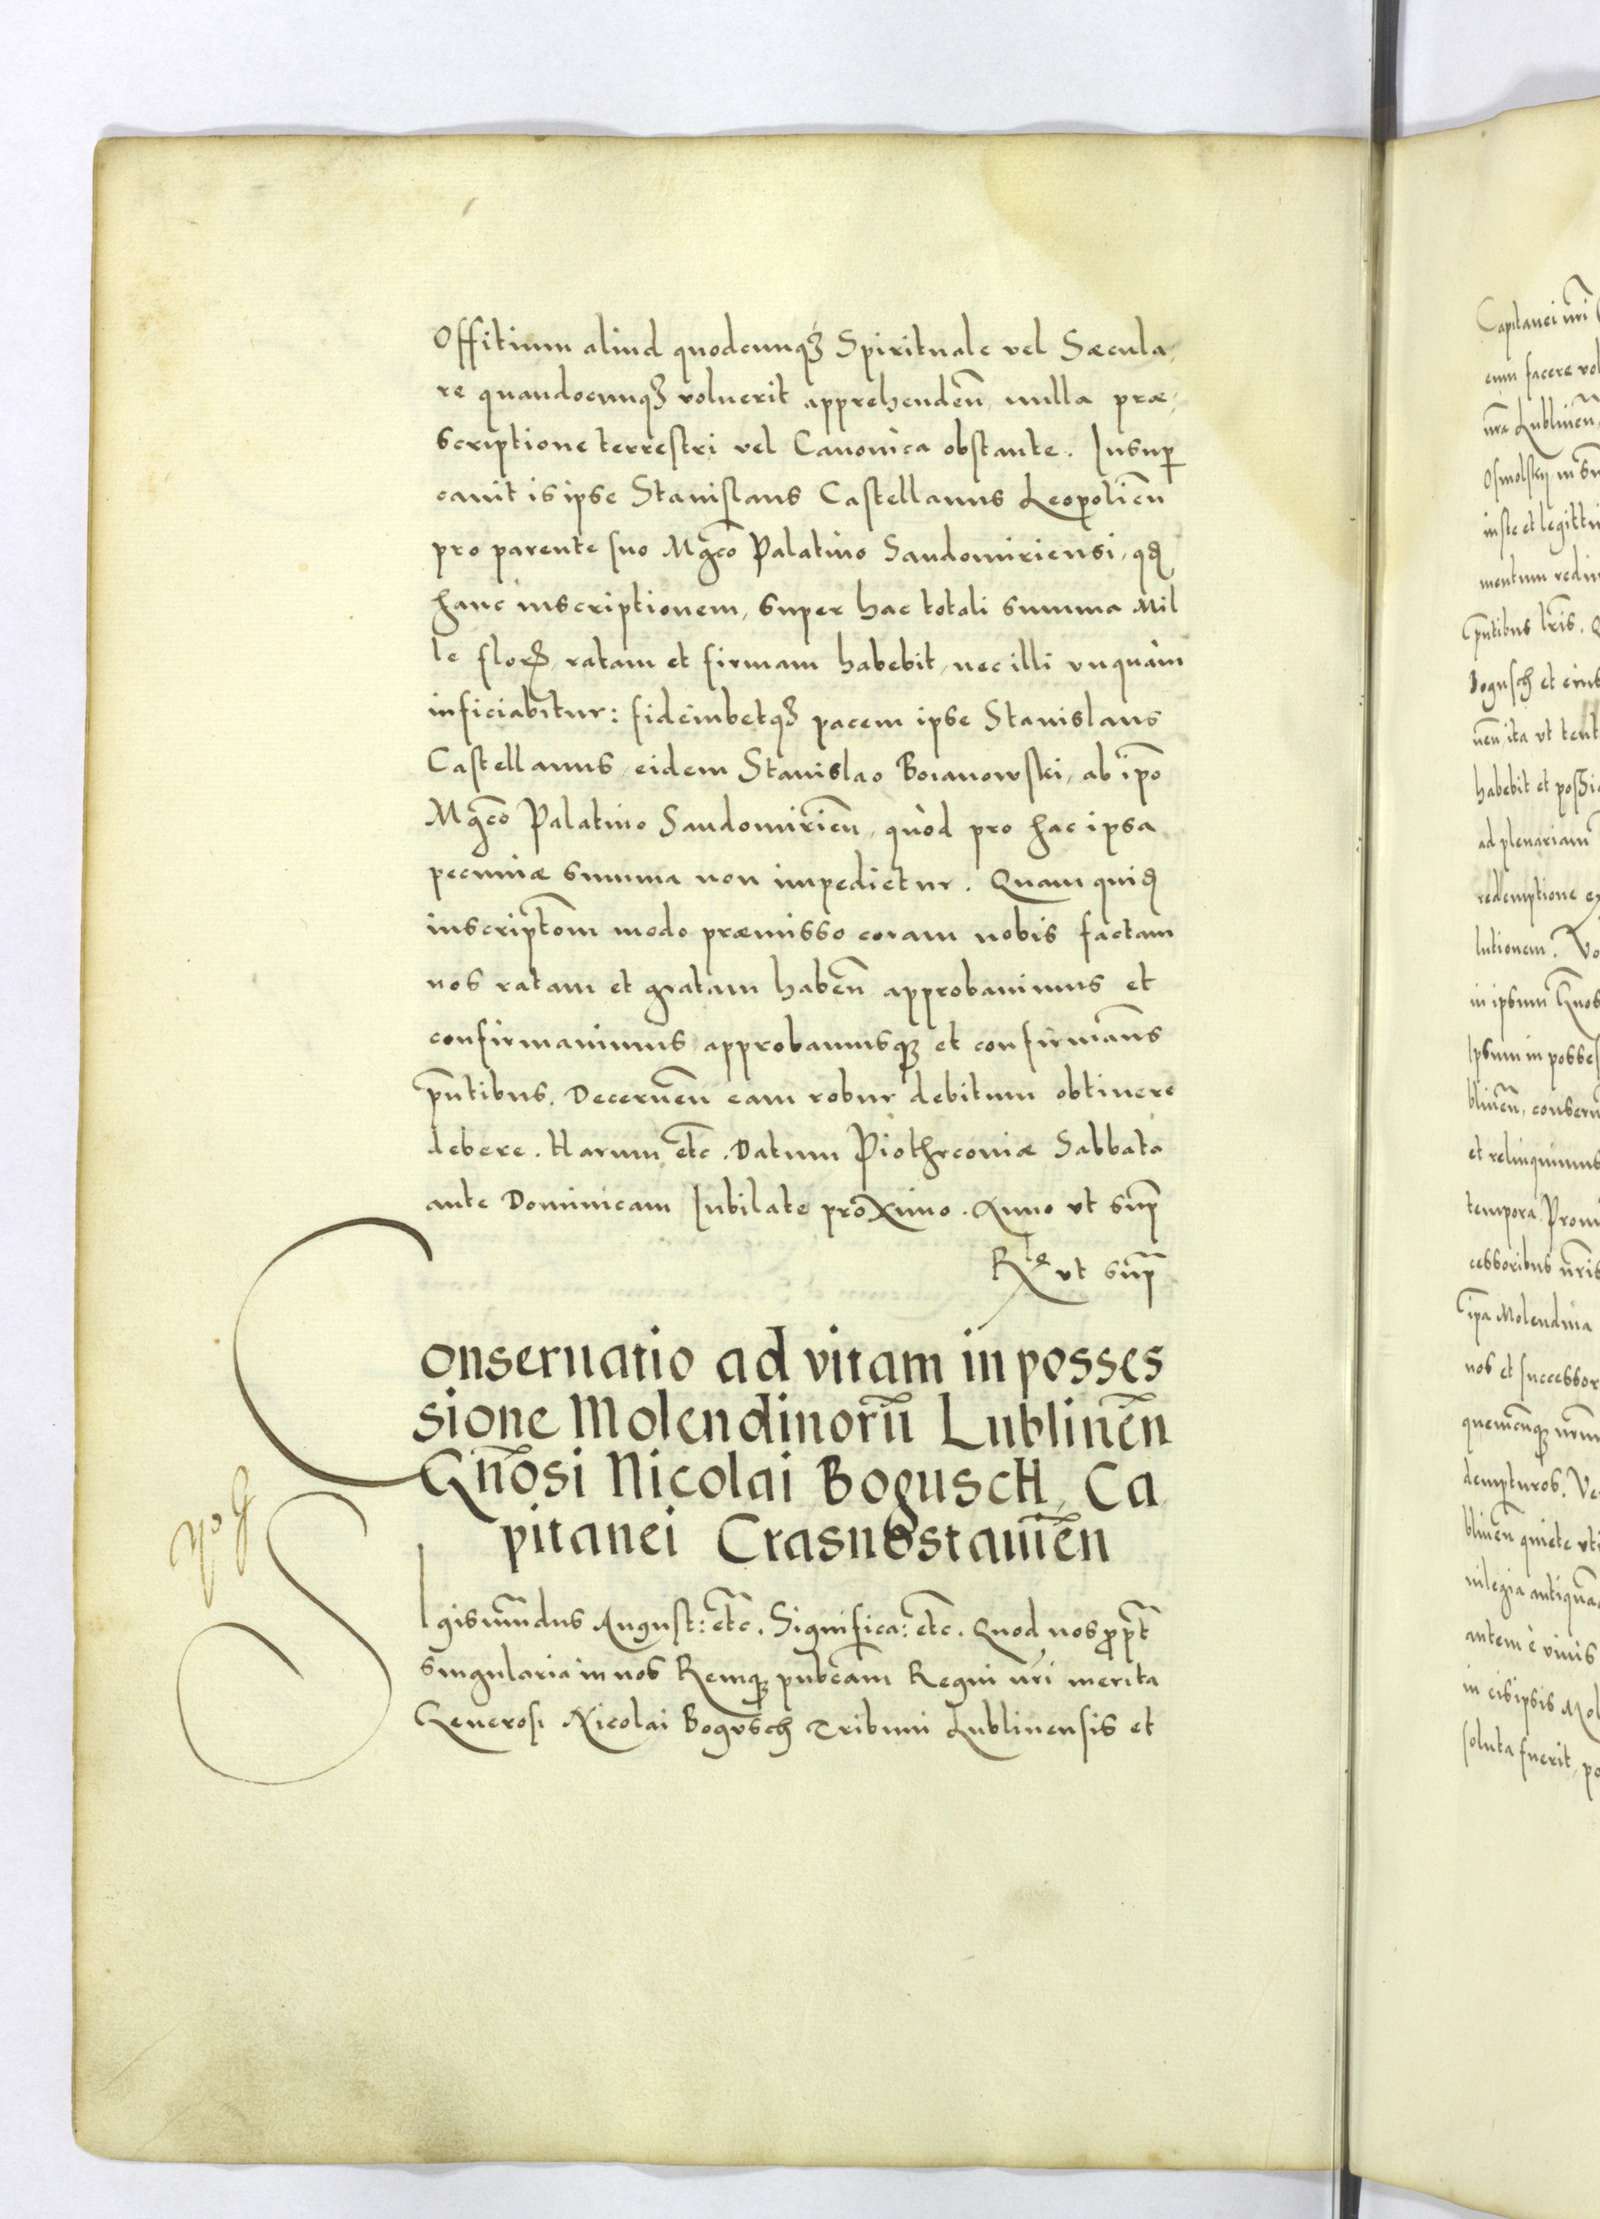 Offitium aliud quodcunqꝫ Spirituale vel Sæcula,
re quandocunqꝫ voluerit apprehendeñ, nulla præ,
scriptione terrestri vel Canonica obstante. Insup̱
cauit is ipse Stanislaus Castellanus Leopolień
pro parente suo Mg̃co Palatino Sandomiriensi, qđ
hanc inscriptionem, super hac totali summa Mil
le floꝝ, ratam et firmam habebit, nec illi vnquàm
inficiabitur: fideíubetqꝫ pacem ipse Stanislaus
Castellanus, eidem Stanislao Boianowski, ab ip̃o
Mg̃co Palatino Sandomirień, quòd pro hac ipsa
pecuniæ summa non impedietur. Quam quid̃
inscript̃om modo præmisso coram nobis factam
nos ratam et gratam habeñ approbauimus et
confirmauimus approbamusqꝫ et confirmam̃s
p̃ntibus. Decerneñ eam robur debitum obtinere
debere. Harum et̃c. Datum Piothrcouiæ Sabbato
ante Dominicam Iubilate proximo. Anno vt sup̃
Rłe vt sup̃
Conseruatio ad vitam in posses
sione Molendinorũ Lublineñ
Gñosi Nicolai BoguscH, Ca
pitanei Crasnostauieñ
SIgismũndus August: et̃c. Significa: et̃c. Quod nos ꝓpt̃
singularia in nos Remqꝫ pubcãm Regni nr̃i merita
Generosi Nicolai Bogusch Tribuni Lublinensis et
Capitanei nr̃i
eum facere vol
nr̃e Lublineñ,
Osmolskij in sũ
iuste et legitti
mentum redim
p̃ntibus lr̃is.
Bogusch et eius
neñ, ita vt tent
habebit et poßi
ad plenariam
redemptione ex
lutionem. Vo
in ipsum Gños
Ipsum in posses
blineñ, conseru
et relinquimus
tempora. Prom
cessoribus nr̃is
ip̃a Molendina
nos et successor
quemcũqꝫ nr̃um
dempturos. Ve
blineñ quiete vti
uilegia antiquã
autem è viuis
in eis ipsis Mol
soluta fuerit, po